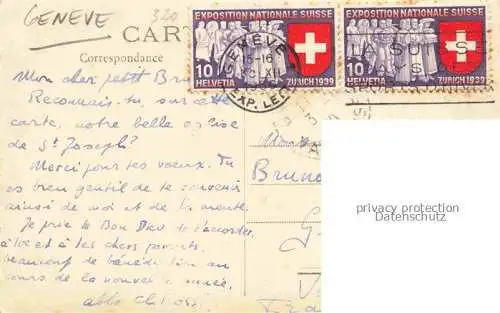 GENEVE
320
CART
Correspondance
EXPOSITION NATIONALE SUISSE
10
HELVETIA
ZURICH 1939
EXPOSITION NATIONALE SUISSE
10
HELVETIA
ZURICH 1939
GENEVE
15-16
XII
EXP. LETT
Mon cher petit Bru
Reconnais-tu, sur cette
carte, notre belle église
de St Joseph?
Merci pour tes voeux. Tu
es bien gentil de te souvenir
ainsi de moi et de la meute.
Je prie le Bon Dieu de t'accorder,
à toi et à tes chers parents,
beaucoup de bénédiction au
cours de la nouvelle année.
abbé
Bruno
G
privacy protection
Datenschutz